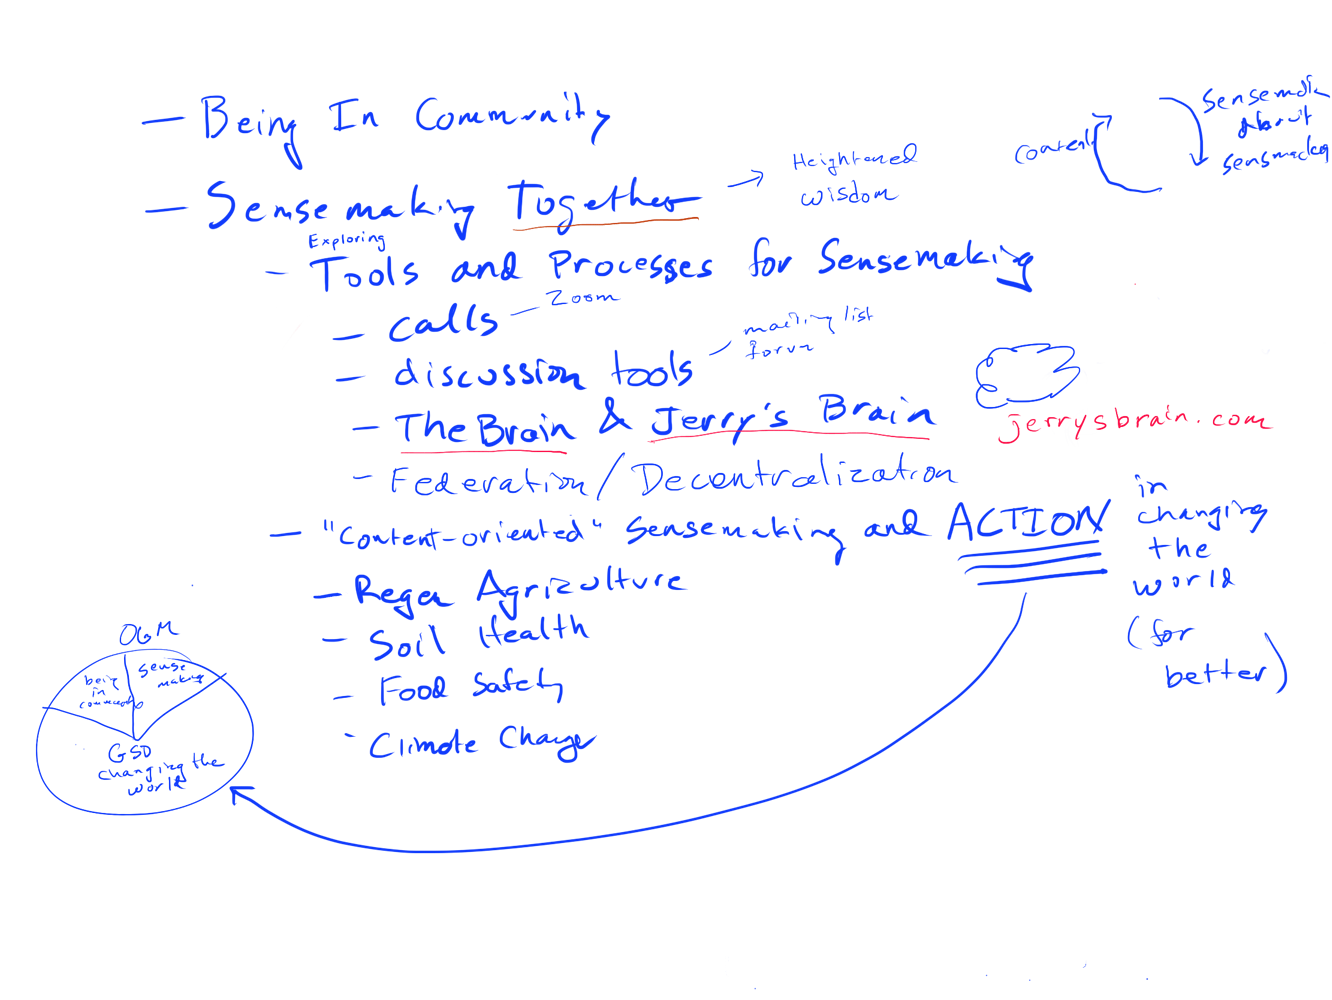 — Being In Community
— Sensemaking Together → Heightened
wisdom
Content
Sensemaki
About
Exploring
- Tools and Processes for Sensemaking
— calls — Zoom
— discussion tools — mailing list
forum
— The Brain & Jerry's Brain
jerrysbrain.com
- Federation / Decentralization
— "Content-oriented" Sensemaking and ACTION
in
changing
the
world
(for
better)
— Regen Agriculture
— Soil Health
— Food Safety
- Climate Change
OGM
being
in
community
sense
making
GSD
changing the
world